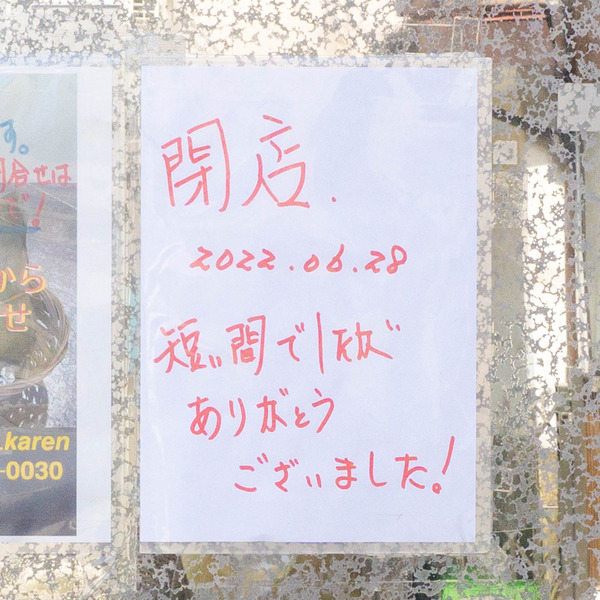 す。
合せは
ぞ!
から
せ
.karen
-0030
閉店.
2022.06.28
短い間でしたが
ありがとう
ございました!